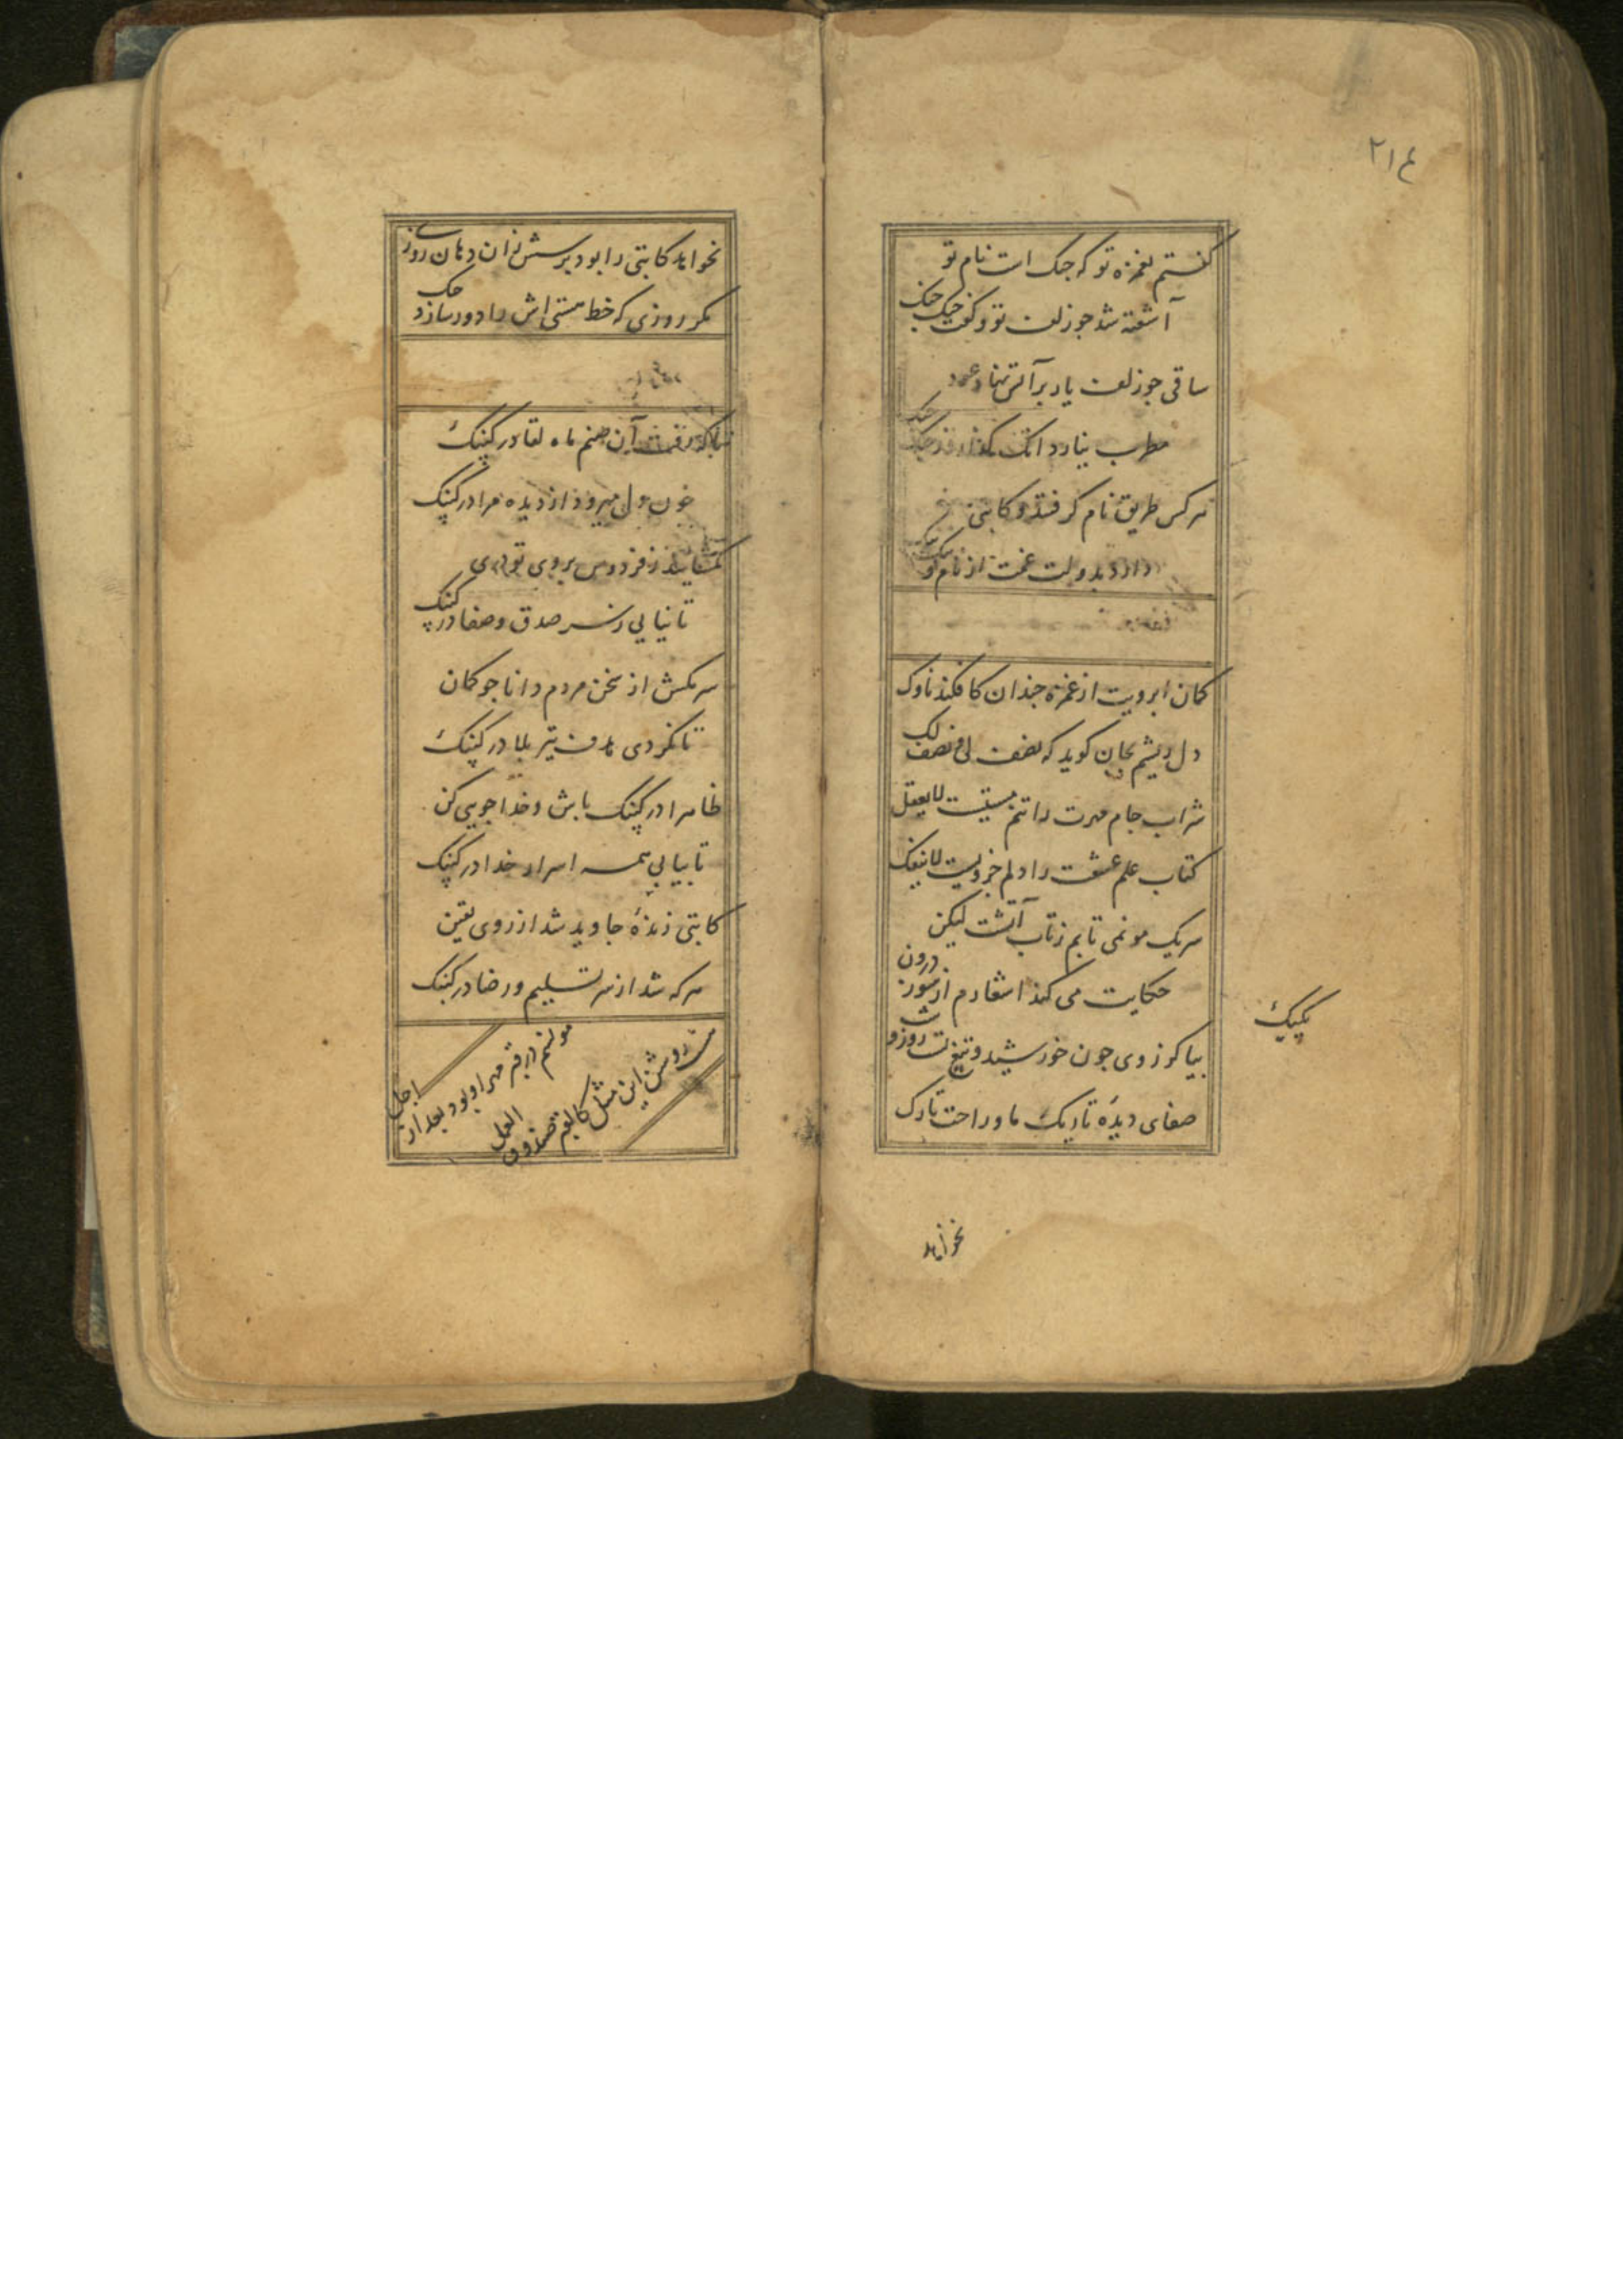 ۲۱۴
گفتم بغمزه تو که جنک است نام تو
آشفته شد جو زلف تو و گفت جنک جنک
ساقی جو زلف یار بر آتش نهاد عود
مطرب بیار
هر کس طریق نام گرفتند و کاتبی
دارد بدولت غمت از نام
کمان ابرویت از غمزه جندان کافکند ناوک
دل ریشم بجان کوید که نصف لی و نصف لک
شراب جام مهرت را تنم مستیست لایعقل
کتاب علم عشقت را دلم جزویست لاینفک
سر یک مو نمی تابم ز تاب آتشت لیکن
حکایت می کند اشعارم از سوز درون
بیا کز روی جون خورشید و تیغ تست روز و شب
صفای دیده تاریک ما و راحت تارک
کپنک
نخواهد
نخواهد کاتبی را بود پرسش زان دهان روزی
مکر روزی که خط هستی اش را دور سازد حک
رفت آن صنم ماه لقا در کپنک
خون دل میرود از دیده مرا در کپنک
نکشایند ز فردوس بروی تو دری
تا نیایی ز سر صدق و صفا در کپنک
سر مکش از سخن مردم دانا جو کمان
تا نکردی هدف تیر بلا در کپنک
ظاهرا در کپنک باش و خدا جویی کن
تا بیابی همه اسرار خدا در کپنک
کاتبی زنده جاوید شد از روی یقین
هر که شد از سر تسلیم و رضا در کپنک
مونسم در قبر مهر او بود بعد از اجل
هست روشن این مثل کالقبر صندوق العمل